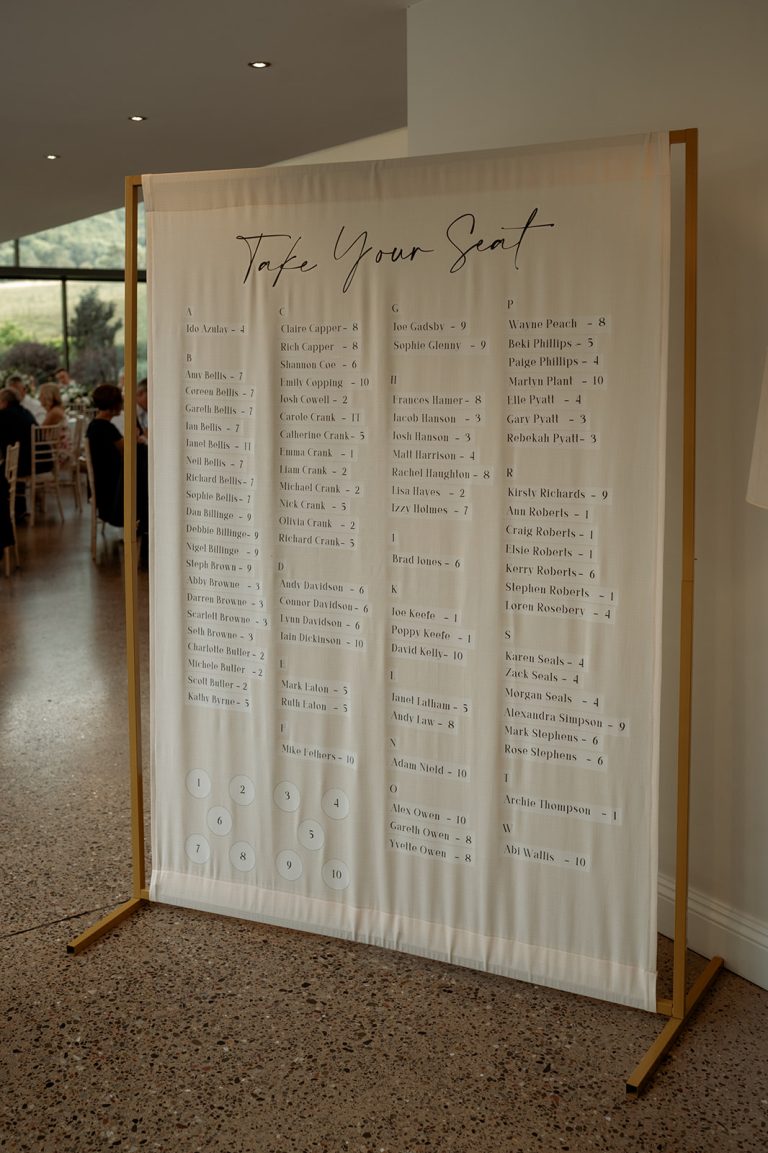 Take Your Seat
A
Ido Azulay - 4
B
Amy Bellis - 7
Coreen Bellis - 7
Gareth Bellis - 7
Ian Bellis - 7
Janel Bellis - 11
Neil Bellis - 7
Richard Bellis - 7
Sophie Bellis - 7
Dan Billinge - 9
Debbie Billinge - 9
Nigel Billinge - 9
Steph Brown - 9
Abby Browne - 3
Darren Browne - 3
Scarlett Browne - 3
Seth Browne - 3
Charlotte Butler - 2
Michele Butler - 2
Scott Butler - 2
Kathy Byrne - 5
C
Claire Capper - 8
Rich Capper - 8
Shannon Coe - 6
Emily Copping - 10
Josh Cowell - 2
Carole Crank - 11
Catherine Crank - 5
Emma Crank - 1
Liam Crank - 2
Michael Crank - 2
Nick Crank - 5
Olivia Crank - 2
Richard Crank - 5
D
Andy Davidson - 6
Connor Davidson - 6
Lynn Davidson - 6
Iain Dickinson - 10
E
Mark Eaton - 5
Ruth Eaton - 5
F
Mike Fethers - 10
G
Joe Gadsby - 9
Sophie Glenny - 9
H
Frances Hamer - 8
Jacob Hanson - 3
Josh Hanson - 3
Matt Harrison - 4
Rachel Haughton - 8
Lisa Hayes - 2
Izzy Holmes - 7
J
Brad Jones - 6
K
Joe Keefe - 1
Poppy Keefe - 1
David Kelly - 10
L
Janet Latham - 5
Andy Law - 8
N
Adam Nield - 10
O
Alex Owen - 10
Gareth Owen - 8
Yvette Owen - 8
P
Wayne Peach - 8
Beki Phillips - 5
Paige Phillips - 4
Martyn Plant - 10
Elle Pyatt - 4
Gary Pyatt - 3
Rebekah Pyatt - 3
R
Kirsly Richards - 9
Ann Roberts - 1
Craig Roberts - 1
Elsie Roberts - 1
Kerry Roberts - 6
Stephen Roberts - 1
Loren Rosebery - 4
S
Karen Seals - 4
Zack Seals - 4
Morgan Seals - 4
Alexandra Simpson - 9
Mark Stephens - 6
Rose Stephens - 6
T
Archie Thompson - 1
W
Abi Wallis - 10
1 2 3 4
6 5
7 8 9 10